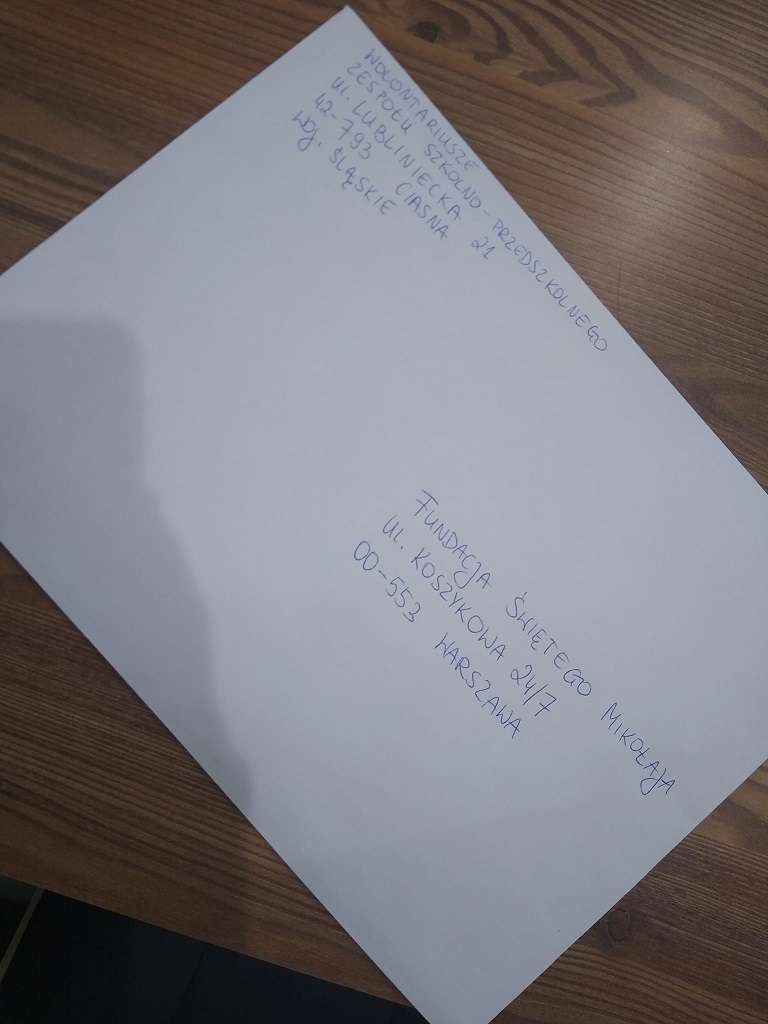 WOLONTARIUSZE
ZESPOŁU SZKOLNO-PRZEDSZKOLNEGO
UL. LUBLINIECKA 21
42-793 CIASNA
WOJ. ŚLĄSKIE
FUNDACJA ŚWIĘTEGO MIKOŁAJA
UL. KOSZYKOWA 24/7
00-553 WARSZAWA